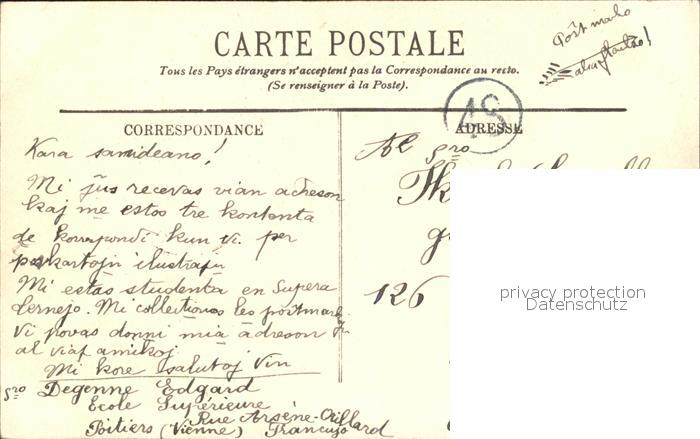 Poŝt marko
alia flanko!
CARTE POSTALE
Tous les Pays étrangers n'acceptent pas la Correspondance au recto.
(Se renseigner à la Poste).
CORRESPONDANCE
ADRESSE
Kara samideano!
Mi ĵus recevas vian adreson
kaj me estos tre kontenta
de korespondi kun vi. per
poŝkartojn ilustrajn
Mi estas studenta en Supera
Lernejo. Mi collectionos les postmarkojn
Vi povas donni mia adreson
al viaj amikoj.
Mi kore salutoj vin
Sro Degenne Edgard
Ecole Supérieure
Rue Arsène-Orillard
Poitiers (Vienne) Francujo
Al Sro
126
privacy protection
Datenschutz